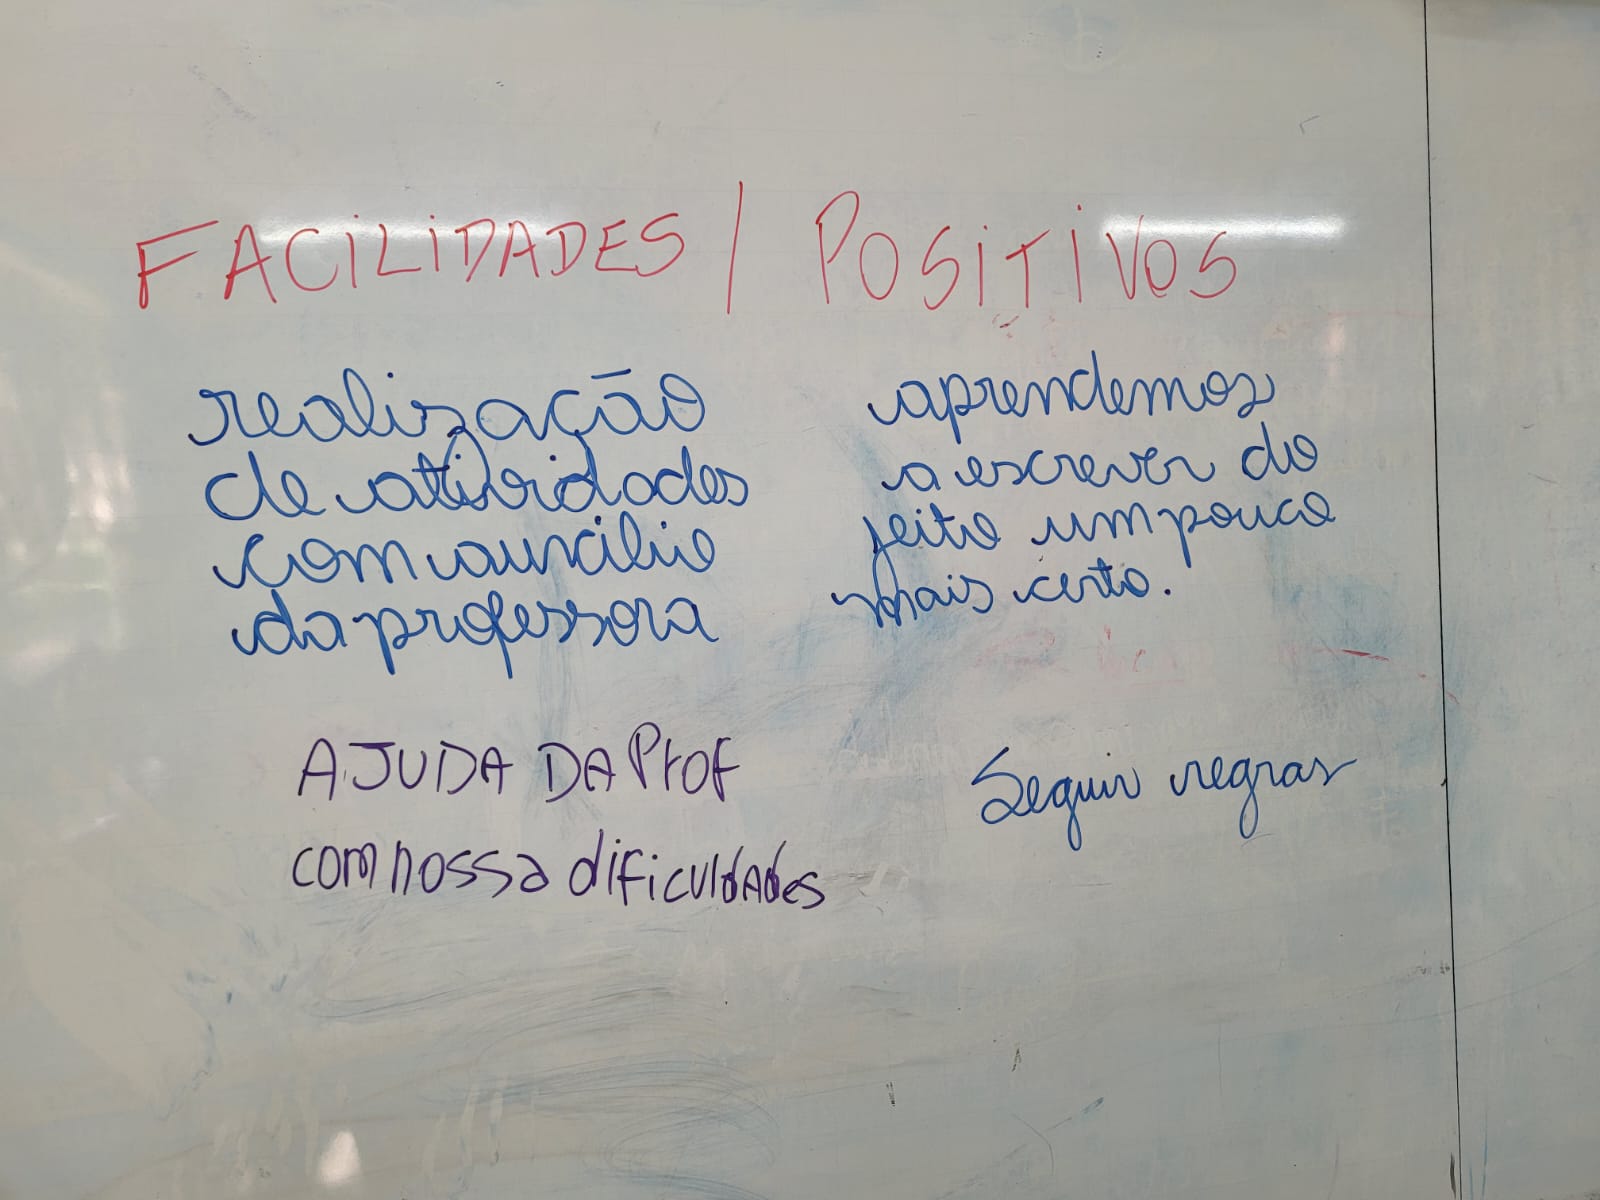 FACILIDADES / POSITIVOS
realização
de atividades
com auxílio
da professora
aprendemos
a escrever do
jeito um pouco
mais certo.
AJUDA DA Prof
com nossa dificuldades
Seguir regras